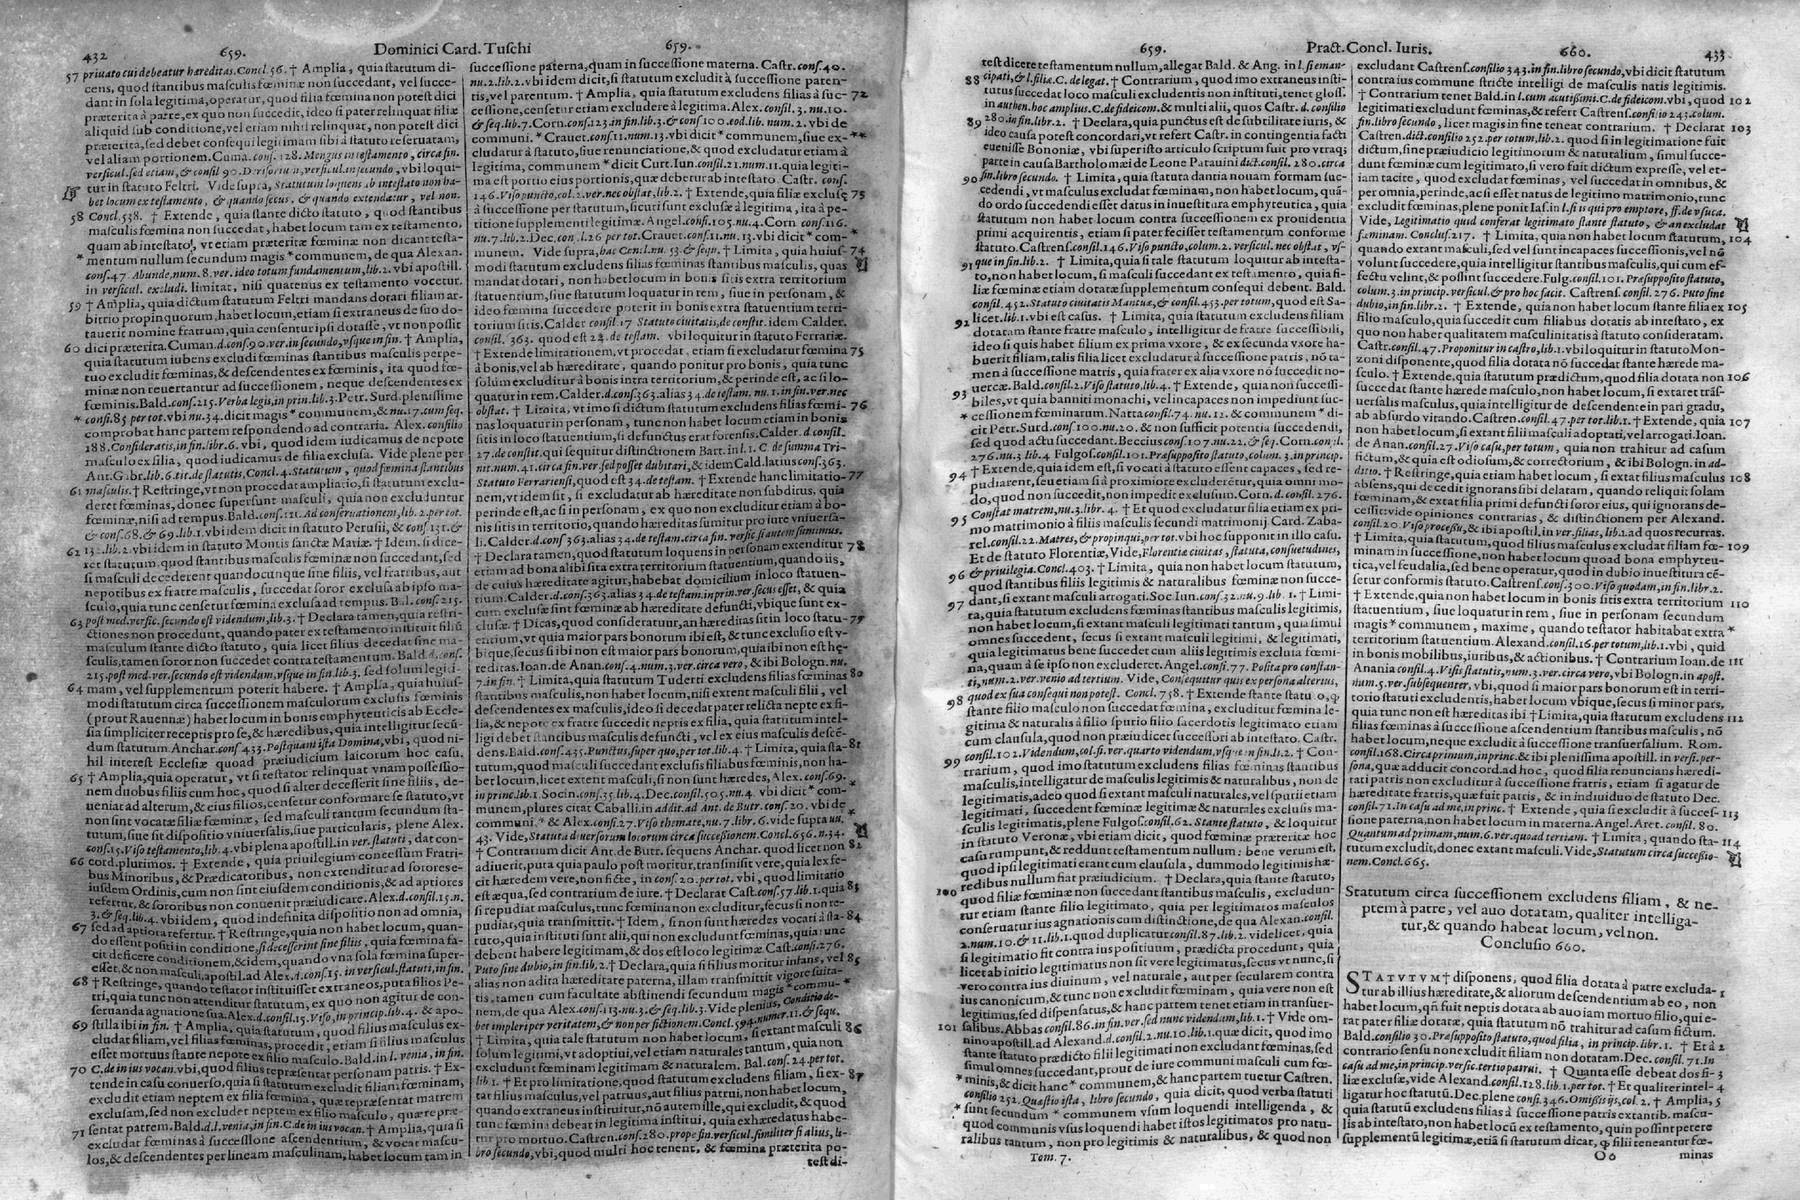 432 659. Dominici Card. Tuschi 659.
57 priuato cui debeatur hæreditas. Concl. 56. † Amplia, quia statutum di-
cens, quod stantibus masculis fœminæ non succedant, vel succe-
dant in sola legitima, operatur, quod filia fœmina non potest dici
præterita à patre, ex quo non succedit, ideo si pater relinquat filiæ
aliquid sub conditione, vel etiam nihil relinquat, non potest dici
præterita, sed debet consequi legitimam sibi à statuto reseruatam,
vel aliam portionem. Cuma. conf. 128. Mengus in testamento, circa fin.
versicul. sed etiam, & consil 90. vbi loqui-
tur in statuto Feltri. Vide supra, Statutum loquens ab intestato non ha-
bet locum ex testamento, & quando secus, & quando extendatur, vel non.
58 Concl. 538. † Extende, quia stante dicto statuto, quod stantibus
masculis fœmina non succedat, habet locum tam ex testamento,
quam ab intestato, vt etiam præteritæ fœminæ non dicant testa-
* mentum nullum secundum magis * communem, de qua Alexan.
conf. 47. Abunde, num. 8. ver. ideo totum fundamentum, lib. 2. vbi apostill.
in versicul. excludi. limitat, nisi quatenus ex testamento vocetur.
59 † Amplia, quia dictum statutum Feltri mandans dotari filiam ar-
bitrio propinquorum, habet locum, etiam si extraneus de suo do-
tauerit nomine fratrum, quia censentur ipsi dotasse, vt non possit
60 dici præterita. Cuman. d. conf. 90. ver. in secundo, vsque in fin. † Amplia,
quia statutum iubens excludi fœminas stantibus masculis perpe-
tuo excludit fœminas, & descendentes ex fœminis, ita quod fœ-
minæ non reuertantur ad successionem, neque descendentes ex
fœminis. Bald. conf. 215. Verba legis, in prin. lib. 3. Petr. Surd. plenissime
* conf. 85 per tot. vbi nu. 34. dicit magis * communem, & nu. 17. cum seq.
comprobat hanc partem respondendo ad contraria. Alex. consilio
188. Consideratis, in fin. libr. 6. vbi, quod idem iudicamus de nepote
masculo ex filia, quod iudicamus de filia exclusa. Vide plene per
Ant. Gabr. lib. 6. tit. de statutis, Concl. 4. Statutum, quod fœmina stantibus
61 masculis. † Restringe, vt non procedat ampliatio, si statutum exclu-
deret fœminas, donec supersunt masculi, quia non excluduntur
fœminæ, nisi ad tempus. Bald. conf. 121. Ad conseruationem, lib. 2. per tot.
& conf. 68. & 69. lib. 1. vbi idem dicit in statuto Perusii, & conf. 131. &
62 132. lib. 2. vbi idem in statuto Montis sanctæ Mariæ. † Idem. si dice-
ret statutum. quod stantibus masculis fœminæ non succedant, sed
si masculi decederent quandocunque sine filiis, vel fratribus, aut
nepotibus ex fratre masculis, succedat soror exclusa ab ipso ma-
sculo, quia tunc censetur fœmina exclusa ad tempus. Bal. conf. 215.
63 post med. versic. secundo est videndum, lib. 3. † Declara tamen, quia restri-
ctiones non procedunt, quando pater ex testamento instituit filiũ
masculum stante dicto statuto, quia licet filius decedat sine ma-
sculis, tamen soror non succedet contra testamentum. Bald. d. conf.
215. post med. ver. secundo est videndum, vsque in fin. lib. 3. sed solum legiti-
64 mam, vel supplementum poterit habere. † Amplia, quia huius-
modi statutum circa successionem masculorum exclusis fœminis
(prout Rauennæ) habet locum in bonis emphyteuticis ab Eccle-
sia simpliciter receptis pro se, & hæredibus, quia intelligitur secũ-
dum statutum. Anchar. conf 433. Postquam ista Domina, vbi, quod ni-
hil interest Ecclesiæ quoad præiudicium laicorum hoc casu.
65 † Amplia, quia operatur, vt si testator relinquat vnam possessio-
nem duobus filiis cum hoc, quod si alter decesserit sine filiis, de-
ueniat ad alterum, & eius filios, censetur conformare se statuto, vt
non sint vocatæ filiæ fœminæ, sed masculi tantum secundum sta-
tutum, siue sit dispositio vniuersalis, siue particularis, plene Alex.
conf. 15. Viso testamento, lib. 4. vbi plena apostill. in ver. statuti, dat con-
66 cord. plurimos. † Extende, quia priuilegium concessum Fratri-
bus Minoribus, & Prædicatoribus, non extenditur ad sorores e-
iusdem Ordinis, cum non sint eiusdem conditionis, & ad aptiores
refertur, & sororibus non conuenit prædicare. Alex. d. conf. 15. n.
3. & seq. lib. 4. vbi idem, quod indefinita dispositio non ad omnia,
67 sed ad aptiora refertur. † Restringe, quia non habet locum, quan-
do essent positi in conditione, si decesserint sine filiis, quia fœmina fa-
cit deficere conditionem, & idem, quando vna sola fœmina super-
esset, & non masculi, apostil. ad Alex. d. conf. 15. in versicul. statuti, in fin.
68 † Restringe, quando testator instituisset extraneos, puta filios Pe-
tri, quia tunc non attenditur statutum, ex quo non agitur de con-
seruanda agnatione sua. Alex. d. conf. 15. Viso, in princip. lib. 4. & apo-
69 stilla ibi in fin. † Amplia, quia statutum, quod filius masculus ex-
cludat filiam, vel filias fœminas, procedit, etiam si masculus
esset mortuus stante nepote ex filio masculo. Bald. in l. venia, in fin.
70 C. de in ius vocan. vbi, quod filius repræsentat personam patris. † Ex-
tende in casu conuerso, quia si statutum excludit filiam fœminam,
excludit etiam neptem ex filia fœmina, quæ repræsentat matrem
exclusam, sed non excludet neptem ex filio masculo, quæ repræ-
sentat patrem. Bald. d. l. venia, in fin. C. de in ius vocan. † Amplia, quia si
71 excludat fœminas à successione ascendentium, & vocat mascu-
los, & descendentes per lineam masculinam, habet locum tam in
successione paterna, quam in successione materna. Castr. conf. 40.
nu. 2. lib. 2. vbi idem dicit, si statutum excludit à successione paren-
tis, vel parentum. † Amplia, quia statutum excludens filias à suc- 72
cessione, censetur etiam excludere à legitima. Alex. consil. 3. nu. 10.
& seq. lib. 7. Corn. conf. 123. in fin. lib. 3. & conf 100. eod. lib. num. 2. vbi de
communi. * Crauet. conf. 11. num. 13. vbi dicit * communem, siue ex- **
cludatur à statuto, siue renunciatione, & quod excludatur etiam à
legitima, communem * dicit Curt. Iun. consil. 21. num 11. quia legiti-
ma est portio eius portionis, quæ deberetur ab intestato. Castr. conf.
146. Viso puncto, col. 2. ver. nec obstat, lib. 2. † Extende, quia filiæ exclusę 75
à successione per statutum, sicuti sunt exclusæ à legitima, ita à pe-
titione supplementi legitimæ. Angel. conf. 105. nu. 4. Corn conf. 116.
nu. 7. lib. 2. Dec. con .l. 26 per tot. Crauet. conf. 11. nu. 13. vbi dicit * com- *
munem. Vide supra, hac Concl. nu. 53. & seqn. † Limita, quia huius- 74
modi statutum excludens filias fœminas stantibus masculis, quas
mandat dotari, non habet locum in bonis sitis extra territorium
statuentium, siue statutum loquatur in rem, siue in personam, &
ideo fœmina succedere poterit in bonis extra statuentium terri-
torium sitis. Calder consil. 17 Statuto ciuitatis, de constit. idem Calder.
consil. 363. quod est 24. de testam. vbi loquitur in statuto Ferrariæ.
† Extende limitationem, vt procedat, etiam si excludatur fœmina 75
à bonis, vel ab hæreditate, quando ponitur pro bonis, quia tunc
solum excluditur à bonis intra territorium, & perinde est, ac si lo-
quatur in rem. Calder. d. conf 363. alias 34. de testam. nu. 1. in fin. ver. nec
obstat. † Limita, vt imo si dictum statutum excludens filias fœmi- 76
nas loquatur in personam, tunc non habet locum etiam in bonis
sitis in loco statuentium, si defunctus erat forensis. Calder. d. consil.
27. de constit. qui sequitur distinctionem Bart. in l. 1. C. de summa Tri-
nit. num. 41. circa fin. ver. sed posset dubitari, & idem Cald. latius conf 363.
Statuto Ferrariensi, quod est 34. de testam. † Extende hanc limitatio- 77
nem, vt idem sit, si excludatur ab hæreditate non subditus, quia
perinde est, ac si in personam, ex quo non excluditur etiam à bo-
nis sitis in territorio, quando hæreditas sumitur pro iure vniuersa-
li. Calder. d. conf 363. alias 34. de testam. circa fin. versic. si autem sumimus.
† Declara tamen, quod statutum loquens in personam extenditur 78
etiam ad bona alibi sita extra territorium statuentium, quando is,
de cuius hæreditate agitur, habebat domicilium in loco statuen-
tium. Calder. d. conf. 363. alias 34 de testam. in prin. ver. secus esset, & quia
cum exclusæ sint fœminæ ab hæreditate defuncti, vbique sunt ex-
clusæ. † Dicas, quod consideratur, an hæreditas sit in loco statu- 79
entium, vt quia maior pars bonorum ibi est, & tunc exclusio est v-
bique, secus si ibi non est maior pars bonorum, quia ibi non est hę-
reditas. Ioan. de Anan. conf. 4. num. 3. ver. circa vero, & ibi Bologn. nu.
7. in fin. † Limita, quia statutum Tuderti excludens filias fœminas 80
stantibus masculis, non habet locum, nisi extent masculi filii, vel
descendentes ex masculis, ideo si decedat pater relicta nepte ex fi-
lia, & nepote ex fratre succedit neptis ex filia, quia statutum intel-
ligi debet stantibus masculis defuncti, vel ex eius masculis descē-
dens. Bald. conf. 435. Punctus, super quo, per tot. lib. 4. † Limita, quia sta- 81
tutum, quod masculi succedant exclusis filiabus fœminis, non ha-
ber locum, licet extent masculi, si non sunt hæredes, Alex. conf. 69.
in princ. lib. 1. Socin. conf. 35. lib. 4. Dec. conf. 505. nu. 4. vbi dicit * com- *
munem, plures citat Caballi. in addit. ad Ant. de Butr. conf. 20. vbi de
communi, * & Alex. conf. 27. Viso themate, nu. 7. libr. 6. vide supra nu. *
43. Vide, Statuta diuersorum locorum circa successionem. Concl. 656. n. 34.
† Contrarium dicit Ant. de Butr. sequens Anchar. quod licet non 82
adiuerit, puta quia paulo post moritur, transmisit vere, quia lex fe-
cit hæredem vere, non ficte, in conf. 20. per tot. vbi, quod licet non
est æqua, sed contrarium de iure. † Declarat Cast. conf. 57. lib. 1. quia 83
si repudiat masculus, tunc fœmina non excluditur, secus si non re-
pudiat, quia transmittit. † Idem, si non sunt hæredes vocati à sta- 84
tuto, quia instituti sunt alii, qui non excludunt fœminas, quia tunc
debent habere legitimam, & dos est loco legitimæ Cast. conf. 276.
Puto sine dubio, in fin. lib. 2. † Declara, quia si filius moritur infans, vel 85
alias non adita hæreditate paterna, illam transmittit vigore suita-
tis. tamen cum facultate abstinendi secundum magis * commu- *
nem, de qua Alex. conf. 113. nu. 3. & seq. lib. 3. Vide plenius, Conditio de-
bet impleri per veritatem, & non per fictionem. Concl. 594. numer. 11. & sequ.
† Limita, quia tale statutum non habet locum, si extant masculi 86
solum legitimi, vt adoptiui, vel etiam naturales tantum, quia non
excludunt fœminam legitimam & naturalem. Bal. conf. 24. per tot.
lib 1. † Et pro limitatione, quod statutum excludens filiam, si ex- 87
tat filius masculus, vel patruus, aut filius patrui, non habet locum,
quando extraneus instituitur, nõ autem ille, qui excludit, & quod
tunc fœmina debeat in legitima institui, quia exhæredatus habe-
tur pro mortuo. Castren. conf. 280. prope fin. versicul. similiter si alius, li-
bro secundo, vbi, quod multi hoc tenent, & fœmina præterita po-
test di-
659. Pract. Concl. Iuris. 660. 433
test dicere testamentum nullum, allegat Bald. & Ang. in l. si eman-
88 cipati, & l. filiæ. C. de legat. † Contrarium, quod imo extraneus insti-
tutus succedat loco masculi excludentis non instituti, tenet gloss.
in authen. hoc amplius. C. de fideicom. & multi alii, quos Castr. d. consilio
89 280. in fin. libr. 2. † Declara, quia punctus est de subtilitate iuris, &
ideo causa potest concordari, vt refert Castr. in contingentia facti
euenisse Bononiæ, vbi super isto articulo scriptum fuit pro vtraq;
parte in causa Bartholomæi de Leone Patauini dict. consil. 280. circa
90 fin. libro secundo. † Limita, quia statuta dantia nouam formam suc-
cedendi, vt masculus excludat fœminam, non habet locum, quã-
do ordo succedendi esset datus in inuestitura emphyteutica, quia
statutum non habet locum contra successionem ex prouidentia
primi acquirentis, etiam si pater fecisset testamentum conforme
statuto. Castrens. consil. 146. Viso puncto, colum. 2. versicul. nec obstat, vs-
91 que in fin. lib. 2. † Limita, quia si tale statutum loquitur ab intesta-
to, non habet locum, si masculi succedant ex testamento, quia fi-
liæ fœminæ etiam dotatæ supplementum consequi debent. Bald.
consil. 452. Statuto ciuitatis Mantuæ, & consil. 453. per totum, quod est Sa-
92 licet. lib. 1. vbi est casus. † Limita, quia statutum excludens filiam
dotatam stante fratre masculo, intelligitur de fratre successibili,
ideo si quis habet filium ex prima vxore, & ex secunda vxore ha-
buerit filiam, talis filia licet excludatur à successione patris, nõ ta-
men à successione matris, quia frater ex alia vxore nõ succedit no-
uercæ. Bald. consil. 2. Viso statuto, lib. 4. † Extende, quia non successi-
93 biles, vt quia banniti monachi, vel incapaces non impediunt suc-
* cessionem fœminarum. Natta consil. 74. nu. 12. & communem * di-
cit Petr. Surd. conf 100. nu. 20. & non sufficit potentia succedendi,
sed quod actu succedant. Beccius conf. 107. nu. 22. & seq. Corn. consil.
276. nu. 3 lib. 4 Fulgos. consil. 101. Præsupposito statuto, colum. 3. in princip.
94 † Extende, quia idem est, si vocati à statuto essent capaces, sed re-
pudiarent, seu etiam si à proximiore excluderẽtur, quia omni mo-
do, quod non succedit, non impedit exclusum. Corn. d. consil. 276.
95 Constat matrem, nu. 3. libr. 4. † Et quod excludatur filia etiam ex pri-
mo matrimonio à filiis masculis secundi matrimonij Card. Zaba-
rel. consil. 22. Matres, & propinqui, per tot. vbi hoc supponit in illo casu.
Et de statuto Florentiæ, Vide, Florentiæ ciuitas, statuta, consuetudines,
96 & priuilegia. Concl. 403. † Limita, quia non habet locum statutum,
quod stantibus filiis legitimis & naturalibus fœminæ non succe-
97 dant, si extant masculi arrogati. Soc. Iun. conf. 32. nu. 9. lib. 1. † Limi-
ta, quia statutum excludens fœminas stantibus masculis legitimis,
non habet locum, si extant masculi legitimati tantum, quia simul
omnes succedent, secus si extant masculi legitimi, & legitimati,
quia legitimatus bene succedet cum aliis legitimis exclusa fœmi-
na, quam à se ipso non excluderet. Angel. consi. 77. Posito pro constan-
ti, num. 2. ver. venio ad tertium. Vide, Consequitur quis ex persona alterius,
98 quod ex sua consequi non potest. Concl. 758. † Extende stante statuto, ꝙ
stante filio masculo non succedat fœmina, excluditur fœmina le-
gitima & naturalis à filio spurio filio sacerdotis legitimato etiam
cum clausula, quod non præiudicet successori ab intestato. Castr.
consil. 102. Videndum, col. fi. ver. quarto videndum, vsque in fin. l. 2. † Con-
99 trarium, quod imo statutum excludens filias fœminas stantibus
masculis, intelligatur de masculis legitimis & naturalibus, non de
legitimatis, adeo quod si extant masculi naturales, vel spurii etiam
legitimati, succedent fœminæ legitimæ & naturales exclusis ma-
sculis legitimatis, plene Fulgos. consil. 62. Stante statuto, & loquitur
in statuto Veronæ, vbi etiam dicit, quod fœminæ præteritæ hoc
casu rumpunt, & reddunt testamentum nullum: bene verum est,
quod ipsi legitimati erant cum clausula, dummodo legitimis hæ-
redibus nullum fiat præiudicium. † Declara, quia stante statuto,
100 quod filiæ fœminæ non succedant stantibus masculis, excludun-
tur etiam stante filio legitimato, quia per legitimatos masculos
conseruatur ius agnationis cum distinctione, de qua Alexan. consil.
2. num. 10. & 11. lib. 1. quod duplicatur consil. 87. lib. 2. videlicet, quia
si legitimatio fit contra ius positiuum, prædicta procedunt, quia
licet ab initio legitimatus non sit vere legitimus, secus vt nunc, si
vero contra ius diuinum, vel naturale, aut per secularem contra
ius canonicum, & tunc non excludit fœminam, quia vere non est
legitimus, sed dispensatus, & hanc partem tenet etiam in transuer-
101 salibus. Abbas consil. 86. in fin. ver. sed nunc videndum, lib. 1. † Vide om-
nino apostill. ad Alexand. d. consil. 2. nu. 10. lib. 1. quæ dicit, quod imo
stante statuto prædicto filii legitimati non excludunt fœminas, sed
simul omnes succedant, prout de iure communi masculi cum fœ-
* minis, & dicit hanc * communem, & hanc partem tuetur Castren.
consilio 252. Quæstio ista, libro secundo, quia dicit, quod verba statuti
* sunt secundum * communem vsum loquendi intelligenda, &
quod communis vsus loquendi habet istos legitimatos pro natu-
ralibus tantum, non pro legitimis & naturalibus, & quod non
Tom. 7.
excludant Castrens. consilio 343. in fin. libro secundo, vbi dicit statutum
contra ius commune stricte intelligi de masculis natis legitimis.
† Contrarium tenet Bald. in l. cum acutissimi. C. de fideicom. vbi, quod 102
legitimati excludunt fœminas, & refert Castrens. consilio 243. colum.
fin. libro secundo, licet magis in fine teneat contrarium. † Declarat 103
Castren. dict. consilio 252. per totum, lib. 2. quod si in legitimatione fuit
dictum, sine præiudicio legitimorum & naturalium, simul succe-
dunt fœminæ cum legitimato, si vero fuit dictum expresse, vel et-
iam tacite, quod excludat fœminas, vel succedat in omnibus, &
per omnia, perinde, ac si esset natus de legitimo matrimonio, tunc
excludit fœminas, plene ponit Ias. in l. si is qui pro emptore, ff. de vsuca.
Vide, Legitimatio quid conferat legitimato stante statuto, & an excludat
fœminam. Conclus. 217. † Limita, quia non habet locum statutum, 104
quando extant masculi, sed sunt incapaces successionis, vel nõ
velint succedere, quia intelligitur stantibus masculis, qui cum ef-
fectu velint, & possint succedere. Fulg. consi. 101. Præsupposito statuto,
colum. 3. in princip. versicul. & pro hoc facit. Castrens. consil. 276. Puto sine
dubio, in fin. lib. 2. † Extende, quia non habet locum stante filia ex 105
filio masculo, quia succedit cum filiabus dotatis ab intestato, ex
quo non habet qualitatem masculinitatis à statuto consideratam.
Castr. consil. 47. Proponitur in castro, lib. 1. vbi loquitur in statuto Mon-
zoni disponente, quod filia dotata nõ succedat stante hærede ma-
sculo. † Extende, quia statutum prædictum, quod filia dotata non 106
succedat stante hærede masculo, non habet locum, si extaret trãs-
uersalis masculus, quia intelligitur de descendente in pari gradu,
ab absurdo vitando. Castren. consil. 47. per tot. lib. 1. † Extende, quia 107
non habet locum, si extant filii masculi adoptati, vel arrogati. Ioan.
de Anan. consil. 27. Viso casu, per totum, quia non trahitur ad casum
fictum, & quia est odiosum, & correctorium, & ibi Bologn. in ad-
ditio. † Restringe, quia etiam habet locum, si extat filius masculus 108
absens, qui decedit ignorans sibi delatam, quando reliquit solam
fœminam, & extat filia primi defuncti soror eius, qui ignorans de-
cessit: vide opiniones contrarias, & distinctionem per Alexand.
consil. 20. Viso processu, & ibi apostil. in ver. filias, lib. 1. ad quos recurras.
† Limita, quia statutum, quod filius masculus excludat filiam fœ- 109
minam in successione, non habet locum quoad bona emphyteu-
tica, vel feudalia, sed bene operatur, quod in dubio inuestitura cẽ-
setur conformis statuto. Castrens. conf. 300. Viso quodam, in fin. libr. 2.
† Extende, quia non habet locum in bonis sitis extra territorium 110
statuentium, siue loquatur in rem, siue in personam secundum
magis * communem, maxime, quando testator habitabat extra *
territorium statuentium. Alexand. consil. 16. per totum, lib. 1. vbi, quid
in bonis mobilibus, iuribus, & actionibus. † Contrarium Ioan. de 111
Anania consil. 4. Visis statutis, num. 3. ver. circa vero, vbi Bologn. in apost.
num. 5. ver. subsequenter, vbi, quod si maior pars bonorum est in terri-
torio statuti excludentis, habet locum vbique, secus si minor pars,
quia tunc non est hæreditas ibi †Limita, quia statutum excludens 112
filias fœminas à successione ascendentium stantibus masculis, nõ
habet locum, neque excludit à successione transuersalium. Rom.
consil. 168. Circa primum, in princ. & ibi plenissima apostill. in versi. per-
sona, quæ adducit concord. ad hoc, quod filia renuncians hæredi-
tati patris non excluditur à successione fratris, etiam si agatur de
hæreditate, quæ fuit patris, & in indiuiduo de statuto Dec.
consil. 71. In casu ad me, in princ. † Extende, quia si excludit à succes- 113
sione paterna, non habet locum in materna. Angel. Aret. consil. 80.
Quantum ad primam, num. 6. ver. quoad tertiam. † Limita, quando sta- 114
tutum excludit, donec extant masculi. Vide, Statutum circa successio-
nem. Concl. 665.
Statutum circa successionem excludens filiam, & ne-
ptem à patre, vel auo dotatam, qualiter intelliga-
tur, & quando habeat locum, vel non.
Conclusio 660.
STATVTVM † disponens, quod filia dotata à patre excluda- 1
tur ab illius hæreditate, & aliorum descendentium ab eo, non
habet locum, qñ fuit neptis dotata ab auo iam mortuo filio, qui e-
rat pater filiæ dotatæ, quia statutum nõ trahitur ad casum fictum.
Bald. consilio 30. Præsupposito statuto, quod filia, in princip. libr. 1. † Et à 2
contrario sensu non excludit filiam non dotatam. Dec. consil. 71. In
casu ad me, in princip. versic. tertio partui. † Quanta esse debeat dos fi- 3
liæ exclusæ, vide Alexand. consil. 128. lib. 1. per tot. † Et qualiter intel- 4
ligatur hoc statutũ. Dec. plene consi. 346. Omissis ijs, col. 2. † Amplia, 5
quia statutũ excludens filias à successione patris extantib. mascu-
lis ab intestato, non habet locũ ex testamento, quin possint petere
supplementũ legitimæ, etiã si statutum dicat, ꝙ filii teneantur fœ-
Oo minas